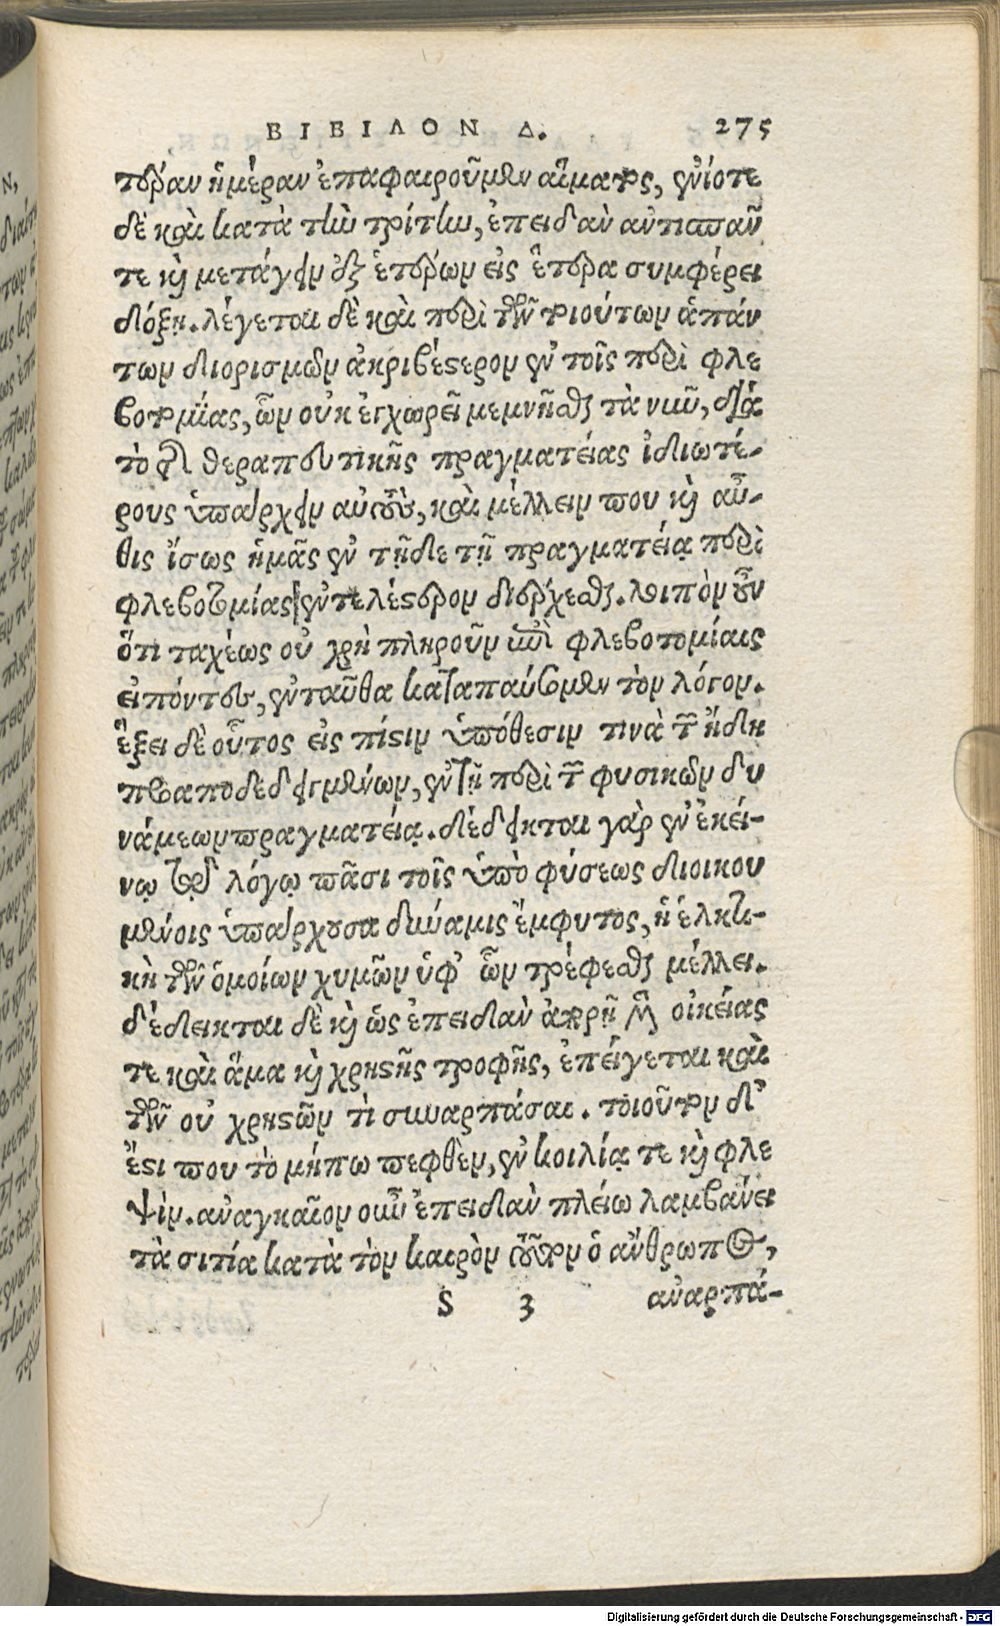 ΒΙΒΙΛΟΝ Δ. 275
τέραν ἡμέραν ἐπαφαιροῦμεν αἵματος, ἐνίοτε
δὲ καὶ κατὰ τὴν τρίτην, ἐπειδὰν ἀντισπᾶν
τε καὶ μετάγειν ἐξ ἑτέρων εἰς ἕτερα συμφέρει
δόξῃ. λέγεται δὲ καὶ περὶ τῶν τοιούτων ἁπάν
των διορισμῶν ἀκριβέστερον ἐν τοῖς περὶ φλε
βοτομίας, ὧν οὐκ ἐγχωρεῖ μεμνῆσθαι τὰ νῦν, διὰ
τὸ τῆς θεραπευτικῆς πραγματείας ἰδιωτέ-
ρους ὑπάρχειν αὐτούς, καὶ μέλλειν που καὶ αὖ-
θις ἴσως ἡμᾶς ἐν τῇδε τῇ πραγματείᾳ περὶ
φλεβοτομίας ἐντελέστερον διέρχεσθαι. λοιπὸν οὖν
ὅτι ταχέως οὐ χρὴ πληροῦν ἐπὶ φλεβοτομίαις
εἰπόντες, ἐνταῦθα καταπαύσωμεν τὸν λόγον.
ἕξει δὲ οὗτος εἰς πίστιν ὑπόθεσιν τινὰ τῶν ἤδη
προαποδεδειγμένων, ἐν τῇ περὶ τῶν φυσικῶν δυ
νάμεων πραγματείᾳ. δέδεικται γὰρ ἐν ἐκεί-
νῳ τῷ λόγῳ πᾶσι τοῖς ὑπὸ φύσεως διοικου
μένοις ὑπάρχουσα δύναμις ἔμφυτος, ἡ ἑλκτι-
κὴ τῶν ὁμοίων χυμῶν ὑφ' ὧν τρέφεσθαι μέλλει.
δέδεικται δὲ καὶ ὡς ἐπειδὰν ἀπορῇ τῆς οἰκείας
τε καὶ ἅμα καὶ χρηστῆς τροφῆς, ἐπείγεται καὶ
τῶν οὐ χρηστῶν τὶ συναρπάσαι. τοιοῦτον δ'
ἔστι που τὸ μήπω πεφθὲν, ἐν κοιλίᾳ τε καὶ φλε
ψίν. ἀναγκαῖον οὖν ἐπειδὰν πλείω λαμβάνει
τὰ σιτία κατὰ τὸν καιρὸν τοῦτον ὁ ἄνθρωπος,
S 3 ἀναρπά-
Digitalisierung gefördert durch die Deutsche Forschungsgemeinschaft - DFG